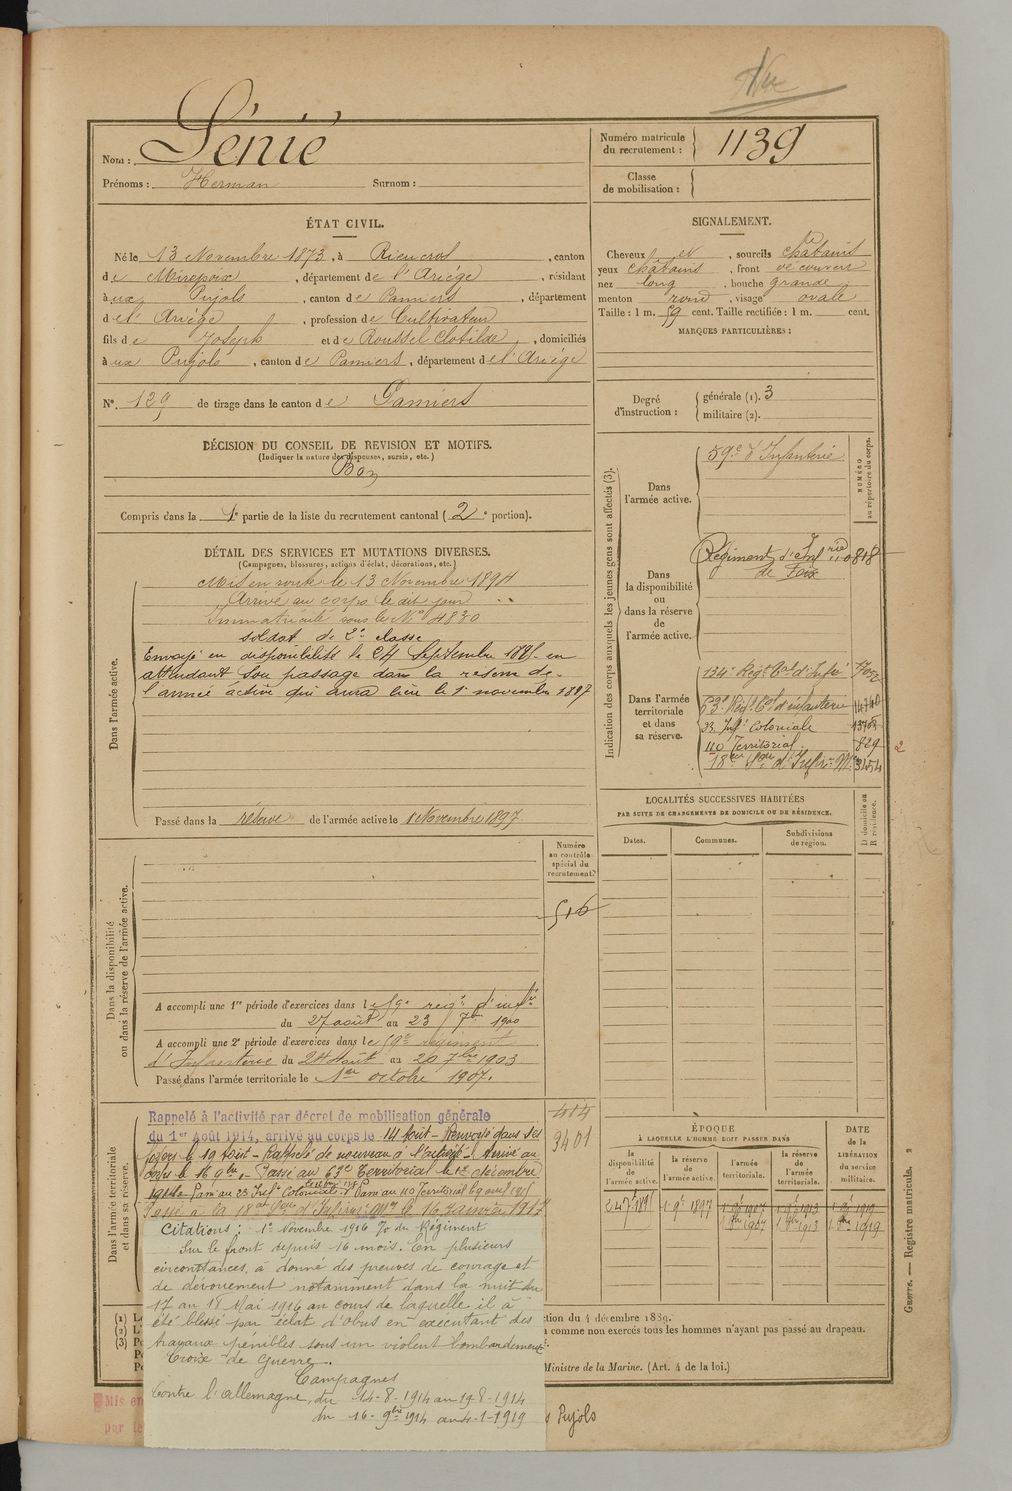 Nom : Génié
Prénoms : Herman Surnom :
Numéro matricule du recrutement : 1139
Classe de mobilisation :
ÉTAT CIVIL.
Né le 13 Novembre 1873, à Rieucros, canton
de Mirepoix, département de l'Ariège, résidant
à ux Pujols, canton de Pamiers, département
de l'Ariège, profession de Cultivateur
fils de Joseph et de Roussel Clotilde, domiciliés
à ux Pujols, canton de Pamiers, département de l'Ariège
N° 129 de tirage dans le canton de Pamiers
DÉCISION DU CONSEIL DE REVISION ET MOTIFS.
(Indiquer la nature des dispenses, sursis, etc.)
Bon
Compris dans la 1e partie de la liste du recrutement cantonal (2e portion).
DÉTAIL DES SERVICES ET MUTATIONS DIVERSES.
(Campagnes, blessures, actions d'éclat, décorations, etc.)
Dans l'armée active.
Mis en route le 13 Novembre 1894
Arrivé au corps le dit jour
Immatriculé sous le N° 4830
soldat de 2e classe
Envoyé en disponibilité le 24 Septembre 1895 en
attendant son passage dans la réserve de
l'armée active qui aura lieu le 1er novembre 1897
Passé dans la réserve de l'armée active le 1 Novembre 1897
Dans la disponibilité ou dans la réserve de l'armée active.
Numéro au contrôle spécial du recrutement.
516
A accompli une 1re période d'exercices dans le 59e régt d'infie
du 27 août au 23 7bre 1900
A accompli une 2e période d'exercices dans le 59e régiment
d'Infanterie du 24 Août au 20 7bre 1903
Passé dans l'armée territoriale le 1er octobre 1907.
Dans l'armée territoriale et dans sa réserve.
414
9401
Rappelé à l'activité par décret de mobilisation générale
du 1er Août 1914, arrivé au corps le 14 Août - Renvoyé dans ses
foyers le 19 Août - Rappelé de nouveau à l'activité - Arrivé au
corps le 16 9bre. Passé au 63e Territorial le 1er décembre
1914. Passé au 23 Infie Coloniale. Passé au 110 Territorial le 9 avril 1915
Passé à la 18e Son d'Infirmiers Mres le 16 Janvier 1917
Citations : 1er Novembre 1916 du Régiment
Sur le front depuis 16 mois. En plusieurs
circonstances, a donné des preuves de courage et
de dévouement notamment dans la nuit du
17 au 18 Mai 1916 au cours de laquelle il a
été blessé par éclat d'obus en exécutant des
travaux pénibles sous un violent bombardement.
Croix de Guerre.
Campagnes
Contre l'allemagne, du 14-8-1914 au 19-8-1914
du 16-9bre 1914 au 4-1-1919
SIGNALEMENT.
Cheveux et, sourcils châtains
yeux châtains, front découvert
nez long, bouche grande
menton rond, visage ovale
Taille : 1 m. 59 cent. Taille rectifiée : 1 m. cent.
MARQUES PARTICULIÈRES :
Degré d'instruction : générale (1). 3
militaire (2).
Indication des corps auxquels les jeunes gens sont affectés (3).
NUMÉRO au répertoire du corps.
Dans l'armée active.
59e d'Infanterie
Dans la disponibilité ou dans la réserve de l'armée active.
Régiment d'Infrie 10818
de Foix
Dans l'armée territoriale et dans sa réserve.
134e Régt Tal d'Infie
63e Régt Tal d'infanterie 14740
23 Infie Coloniale 13708
110 Territorial 829 2
18e Son d'Infirs Mres 3454
LOCALITÉS SUCCESSIVES HABITÉES
PAR SUITE DE CHANGEMENTS DE DOMICILE OU DE RÉSIDENCE.
Dates. Communes. Subdivisions de région. D domicile ou R résidence.
ÉPOQUE
À LAQUELLE L'HOMME DOIT PASSER DANS
la disponibilité de l'armée active. la réserve de l'armée active l'armée territoriale. la réserve de l'armée territoriale.
DATE de la LIBÉRATION du service militaire.
24 7bre 1895 1 9bre 1897 1 9bre 1907 1 9bre 1913 1 9bre 1919
1 8bre 1907 1 8bre 1913 1 8bre 1919
(1)
(2)
(3)
tion du 4 décembre 1889.
comme non exercés tous les hommes n'ayant pas passé au drapeau.
Ministre de la Marine. (Art. 4 de la loi.)
Guerre. — Registre matricule. 2
Mis en
par le
Pujols